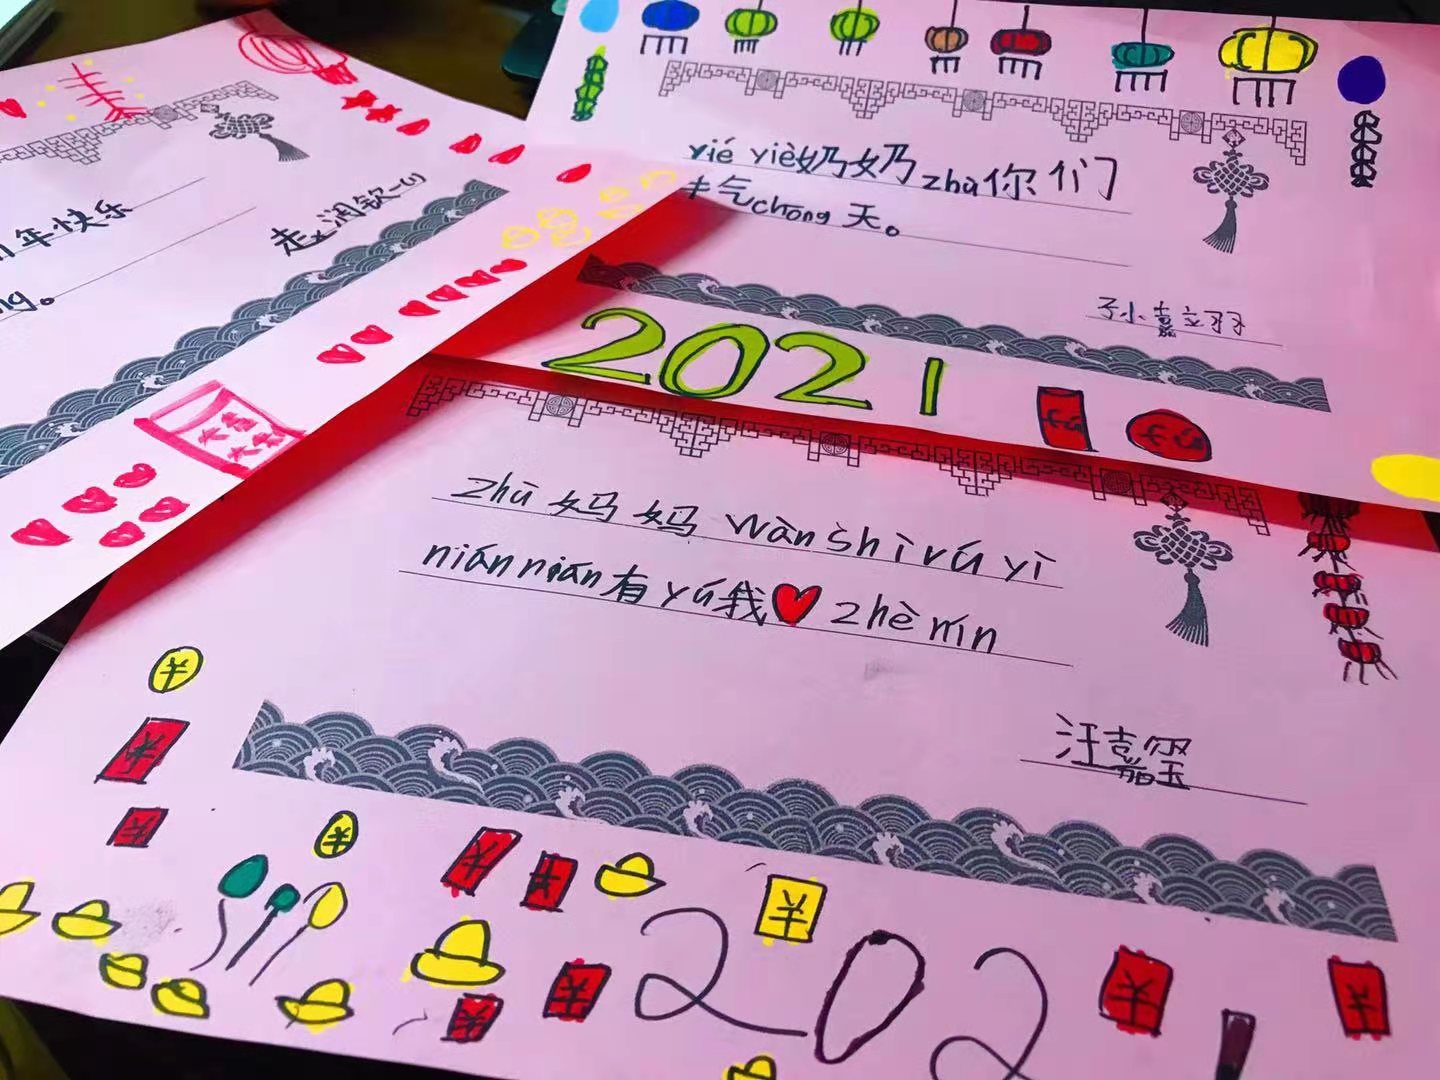 年快乐
ng。
大吉
大
yié yiè奶奶zhù你们
牛气chōng天。
孙小嘉立羽
2021
fú
fú
zhù 妈妈 wàn shì rú yì
niánnián有yú我❤zhè nín
汪嘉玺
¥
¥
¥
¥
¥
¥
¥
¥
¥
¥
¥
2021